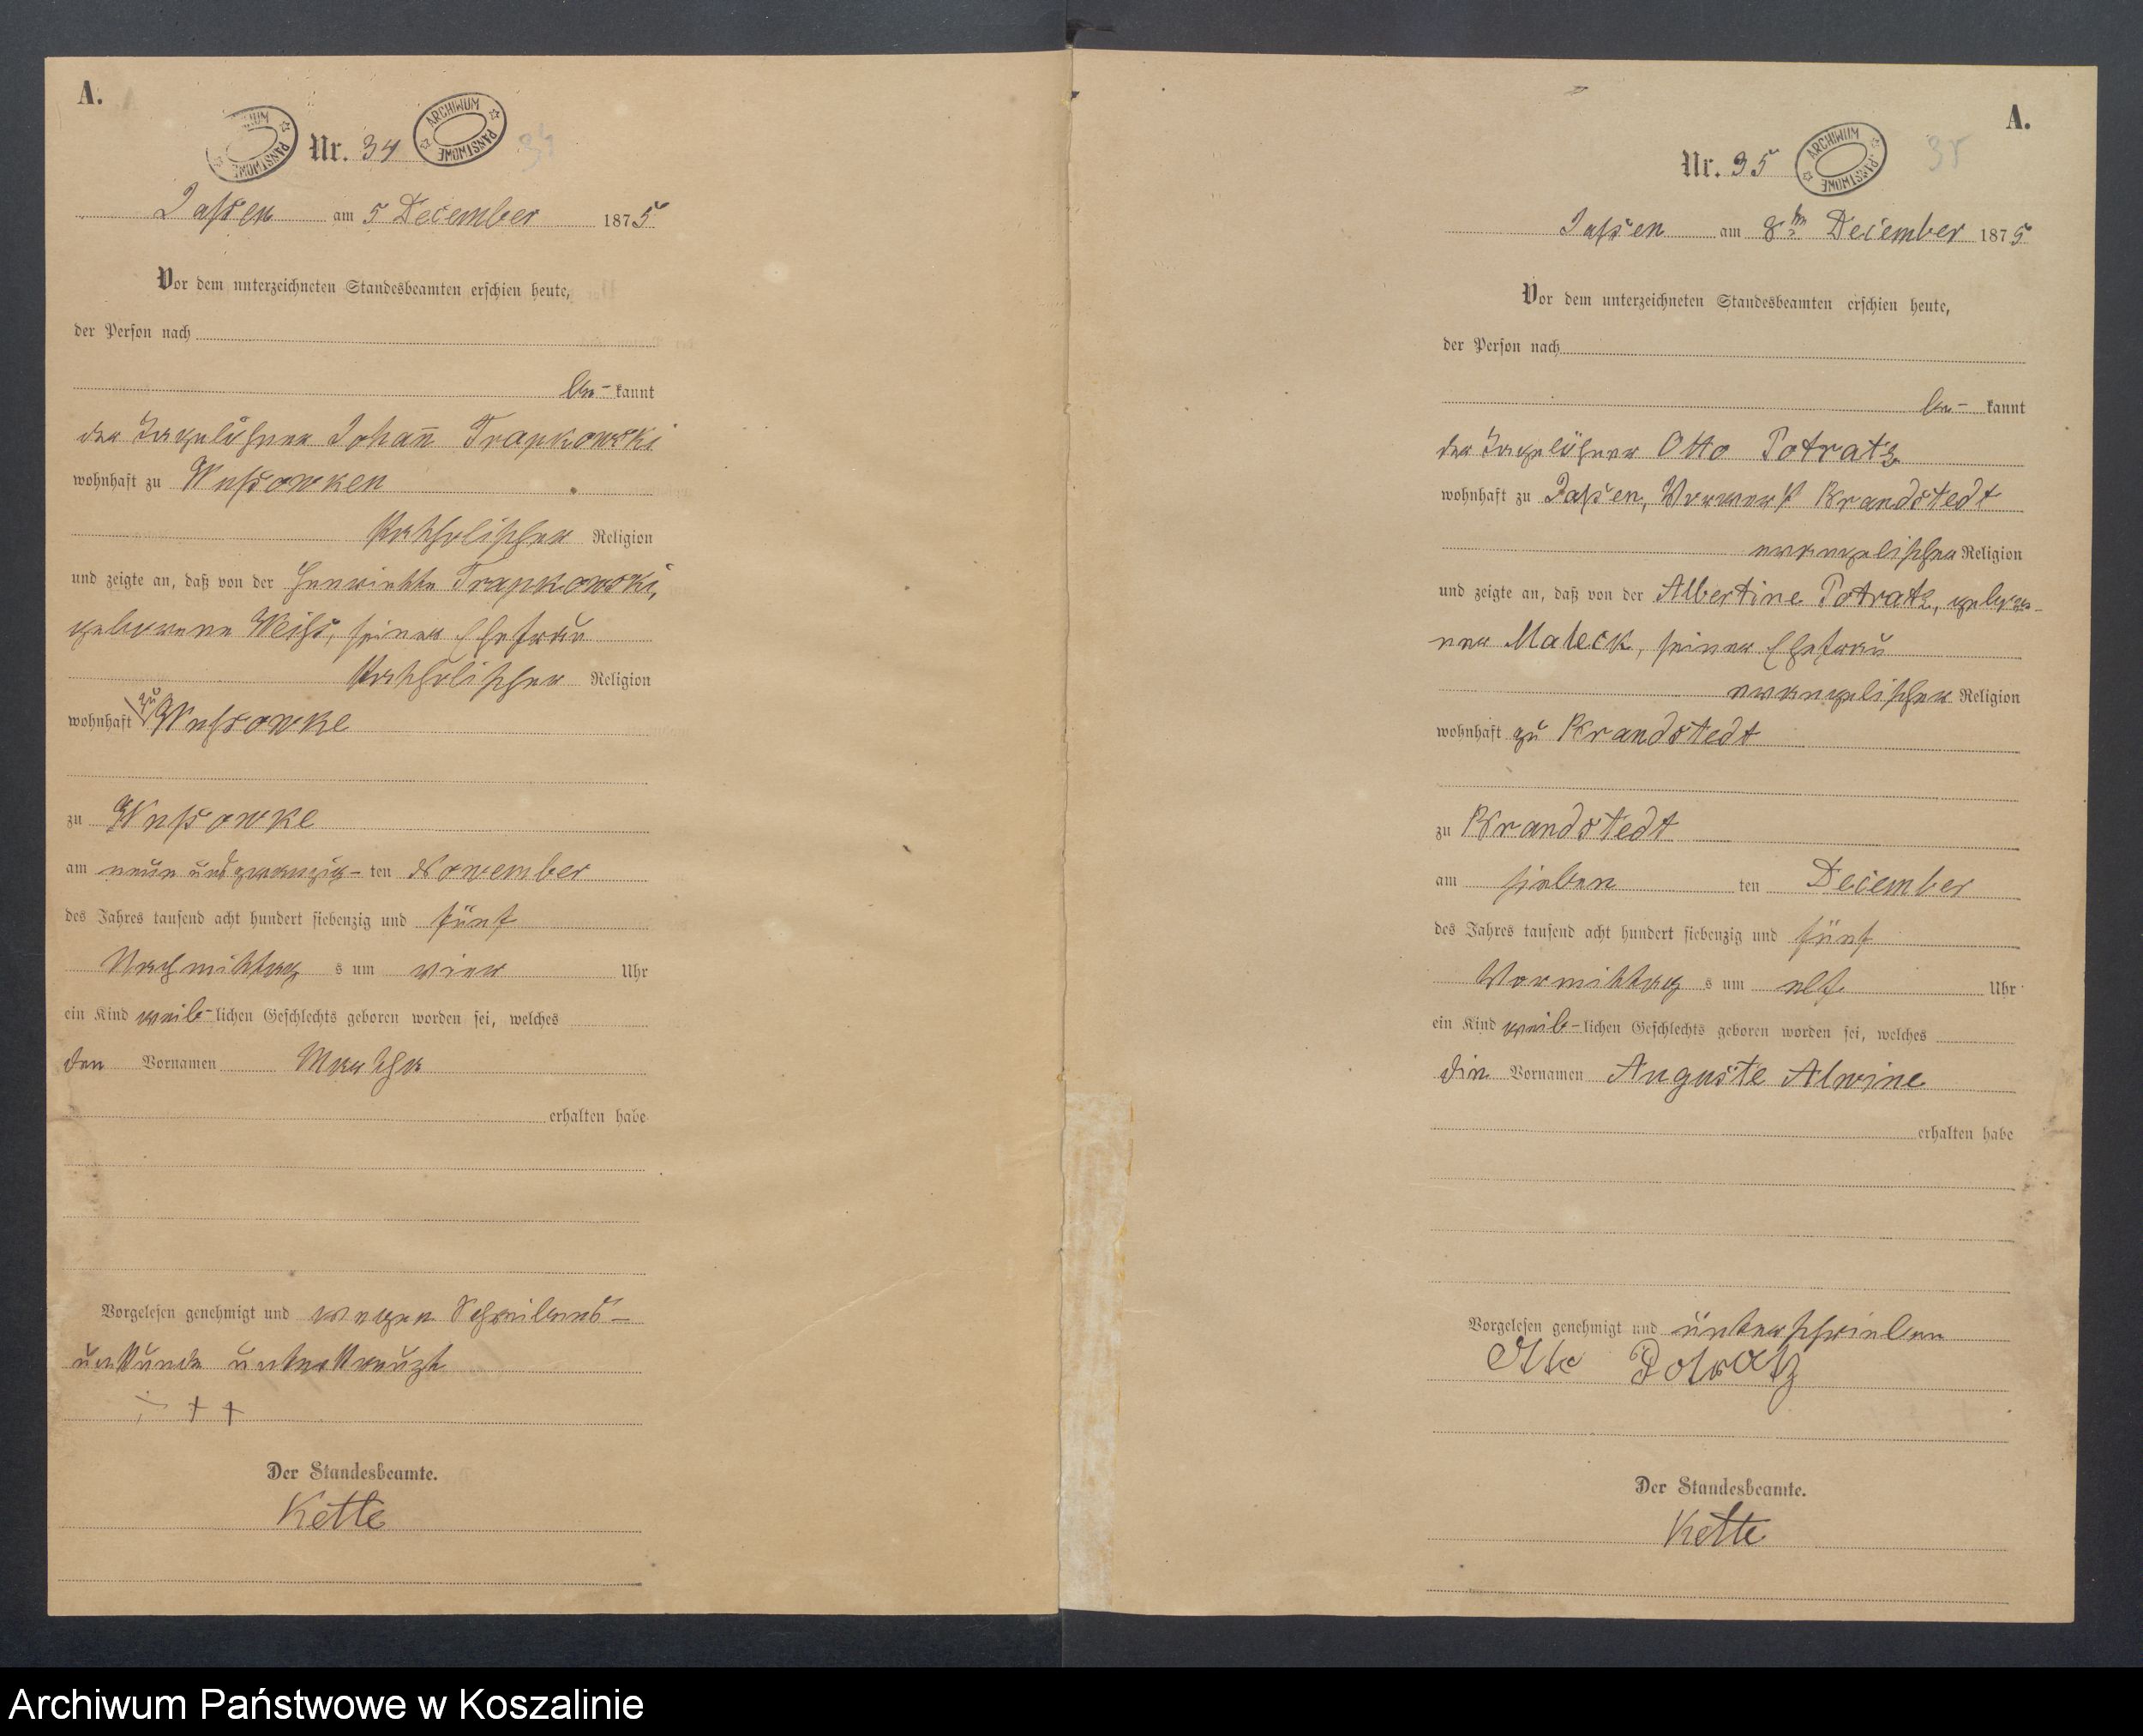 A.
Nr. 34
ARCHIWUM PAŃSTWOWE
ARCHIWUM PAŃSTWOWE
34
Jassen am 5 December 1875
Vor dem unterzeichneten Standesbeamten erschien heute,
der Person nach
be- kannt
der Tagelöhner Johann̄ Trapkowski
wohnhaft zu Wussowken
Katholischer Religion
und zeigte an, daß von der Henriette Trapkowski,
geborene Weiss, seiner Ehefrau
Katholischer Religion
wohnhaft zu Wussowke
zu Wussowke
am neun und zwanzig- ten November
des Jahres tausend acht hundert siebenzig und fünf
Nachmittag s um vier Uhr
ein Kind weib- lichen Geschlechts geboren worden sei, welches
den Vornamen Martha
erhalten habe
Vorgelesen genehmigt und wegen Schreibens-
unkunde unterkreuzt
+ + +
Der Standesbeamte.
Kette
A.
Nr. 35
ARCHIWUM PAŃSTWOWE
35
Jassen am 8ten December 1875
Vor dem unterzeichneten Standesbeamten erschien heute,
der Person nach
be- kannt
der Tagelöhner Otto Potratz
wohnhaft zu Jassen, Vorwerk Brandstedt
evangelischer Religion
und zeigte an, daß von der Albertine Potratz, gebore-
ner Maleck, seiner Ehefrau
evangelischer Religion
wohnhaft zu Brandstedt
zu Brandstedt
am sieben ten December
des Jahres tausend acht hundert siebenzig und fünf
Vormittag s um elf Uhr
ein Kind weib- lichen Geschlechts geboren worden sei, welches
die Vornamen Auguste Alwine
erhalten habe
Vorgelesen genehmigt und unterschrieben
Otto Potratz
Der Standesbeamte.
Kette
Archiwum Państwowe w Koszalinie